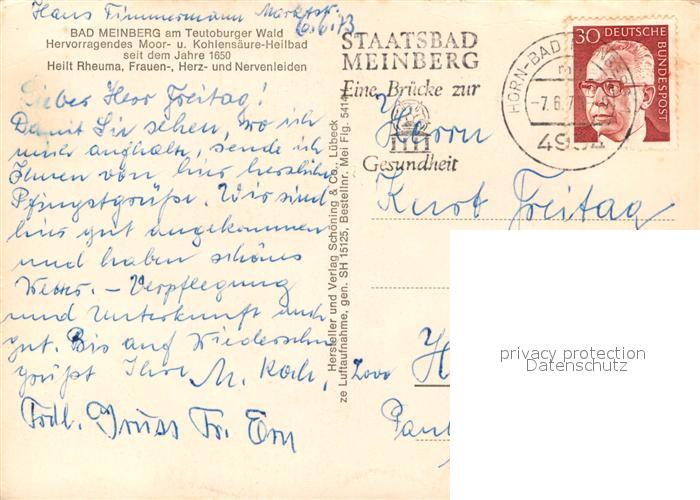 Hans Timmermann Marktstr.
6.6.73
BAD MEINBERG am Teutoburger Wald
Hervorragendes Moor- u. Kohlensäure-Heilbad
seit dem Jahre 1650
Heilt Rheuma, Frauen-, Herz- und Nervenleiden
Lieber Herr Freitag!
Damit Sie sehen, wo ich
mich aufhalte, sende ich
Ihnen von hier herzliche
Pfingstgrüße. Wir sind
hier gut angekommen
und haben schönes
Wetter. - Verpflegung
und Unterkunft auch
gut. Bis auf Wiedersehn
grüßt Ihre M. Koch,
Frdl. Gruss Fr.
Hersteller und Verlag Schöning & Co., Lübeck
ze Luftaufnahme, gen. SH 15125, Bestellnr. Mei Fig. 541
STAATSBAD
MEINBERG
Eine Brücke zur
Gesundheit
HORN-BAD
-7.6.7
30 DEUTSCHE
BUNDESPOST
Herrn
Kurt Freitag
H
privacy protection
Datenschutz